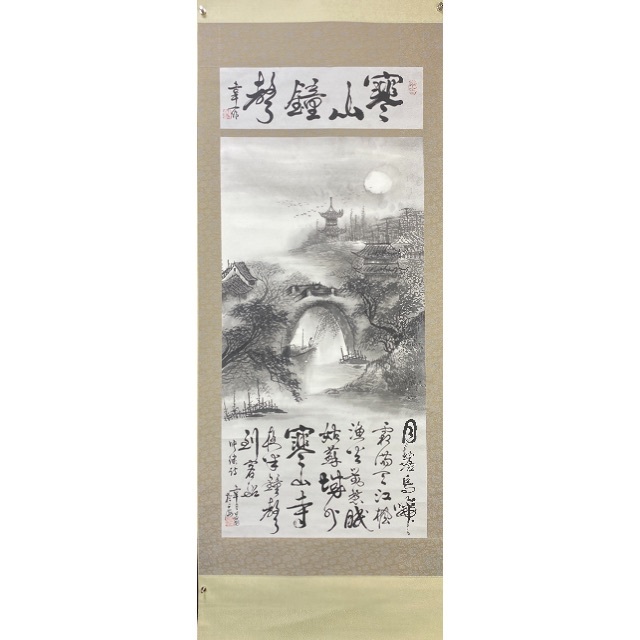 寒山鐘聲
月落烏啼
霜滿天江楓
漁火對愁眠
姑蘇城外
寒山寺
夜半鐘聲
到客船
張繼詩